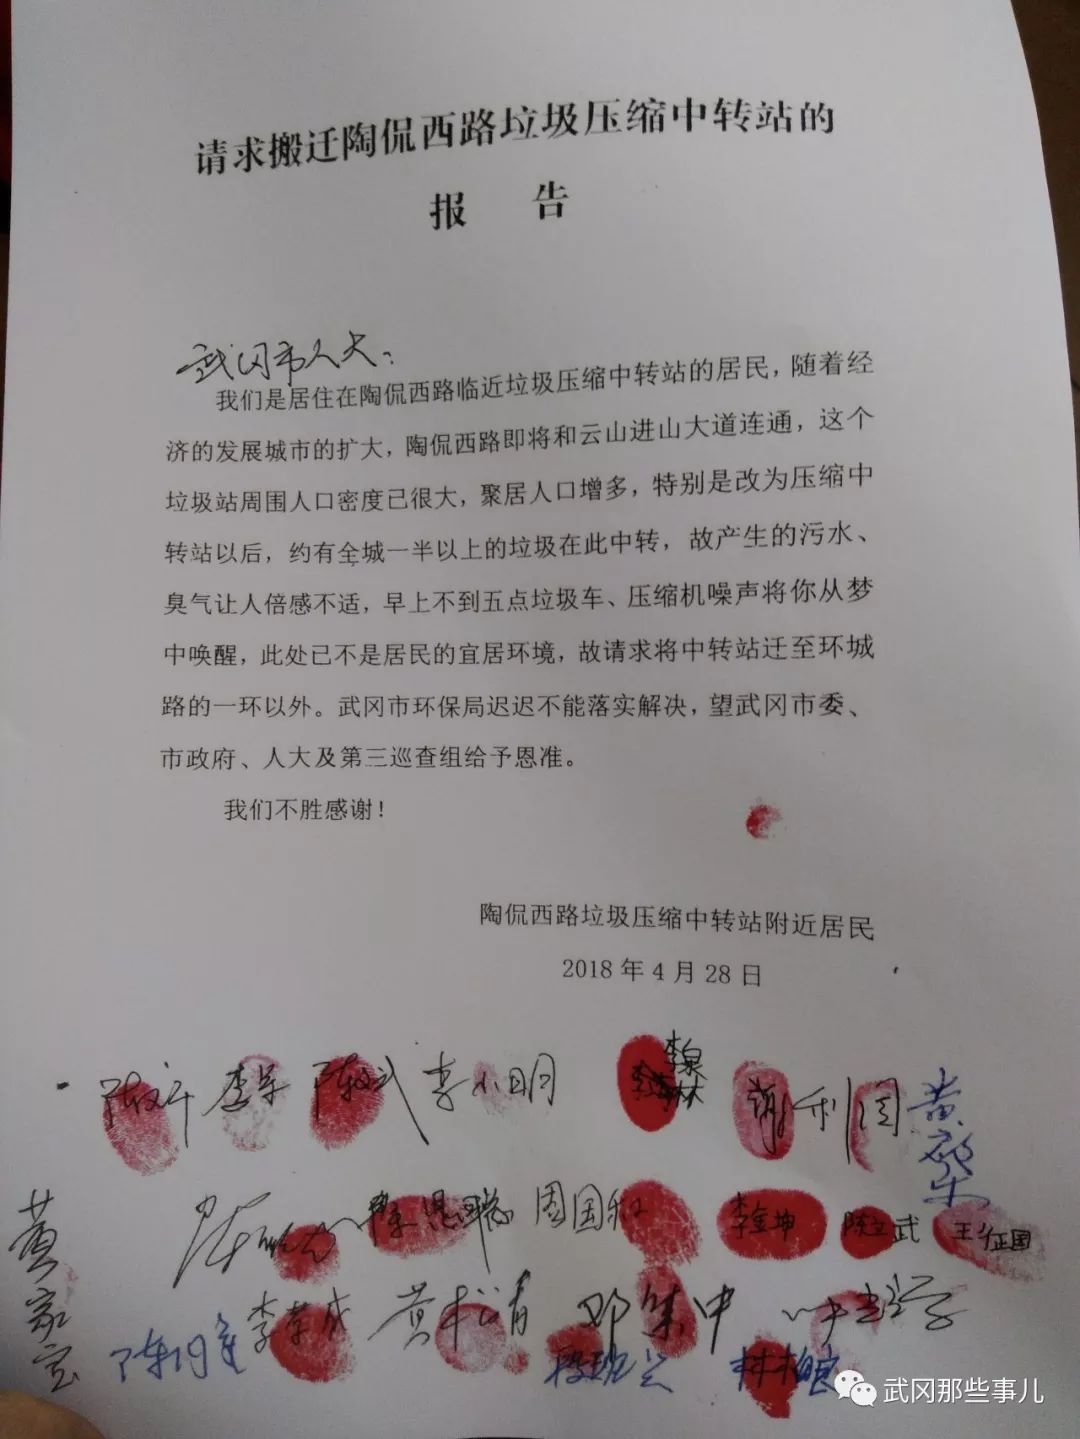 请求搬迁陶侃西路垃圾压缩中转站的
报 告
武冈市人大：
我们是居住在陶侃西路临近垃圾压缩中转站的居民，随着经
济的发展城市的扩大，陶侃西路即将和云山进山大道连通，这个
垃圾站周围人口密度已很大，聚居人口增多，特别是改为压缩中
转站以后，约有全城一半以上的垃圾在此中转，故产生的污水、
臭气让人倍感不适，早上不到五点垃圾车、压缩机噪声将你从梦
中唤醒，此处已不是居民的宜居环境，故请求将中转站迁至环城
路的一环以外。武冈市环保局迟迟不能落实解决，望武冈市委、
市政府、人大及第三巡查组给予恩准。
我们不胜感谢！
陶侃西路垃圾压缩中转站附近居民
2018 年 4 月 28 日
李军 李小明 谢利 黄
周国和 李金坤 陈立武 王 国
黄家宝 李 成 黄 清 邓集中 叶 学
陈 林柏良
武冈那些事儿